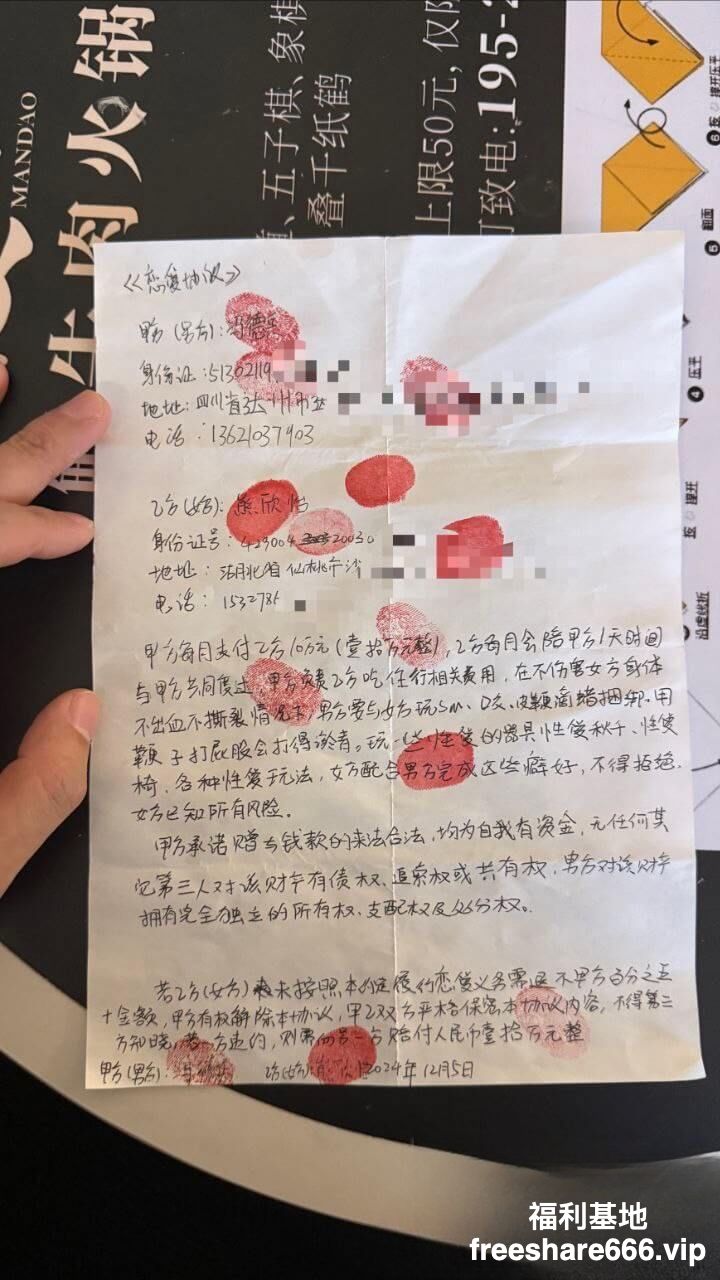 MANDAO
牛肉火锅
、五子棋、象棋
叠千纸鹤
上限50元，仅限
可致电:195-2
⑥ 按 撑开压平
⑤ 翻面
④ 压平
按 撑开
沿虚线折
《恋爱协议》
甲方（男方）：
身份证：51302119
地址：四川省达州市
电话：13621037903
乙方（女方）：熊欣怡
身份证号：429004 20030
地址：湖北省仙桃市沙
电话：153278
甲方每月支付乙方10万元（壹拾万元整），乙方每月会陪甲方1天时间
与甲方共同度过，甲方负责乙方吃住行相关费用，在不伤害女方身体
不出血不撕裂情况下，男方要与女方玩sm、口交、皮鞭滴蜡捆绑、用
鞭子打屁股会打得淤青。玩一些性爱的器具性爱秋千、性爱
椅、各种性爱玩法，女方配合男方完成这些癖好，不得拒绝，
女方已知所有风险。
甲方承诺赠与钱款的来法合法，均为自我有资金，无任何其
它第三人对该财产有债权、追索权或共有权，男方对该财产
拥有完全独立的所有权、支配权及处分权。
若乙方（女方）未按照本约定履行恋爱义务需退 甲方百分之五
十金额，甲方有权解除本协议，甲乙双方严格保密本协议内容，不得第三
方知晓，若一方违约，则需向另一方赔付人民币壹拾万元整
甲方（男方）： 乙方（女方） 2024年12月5日
福利基地
freeshare666.vip